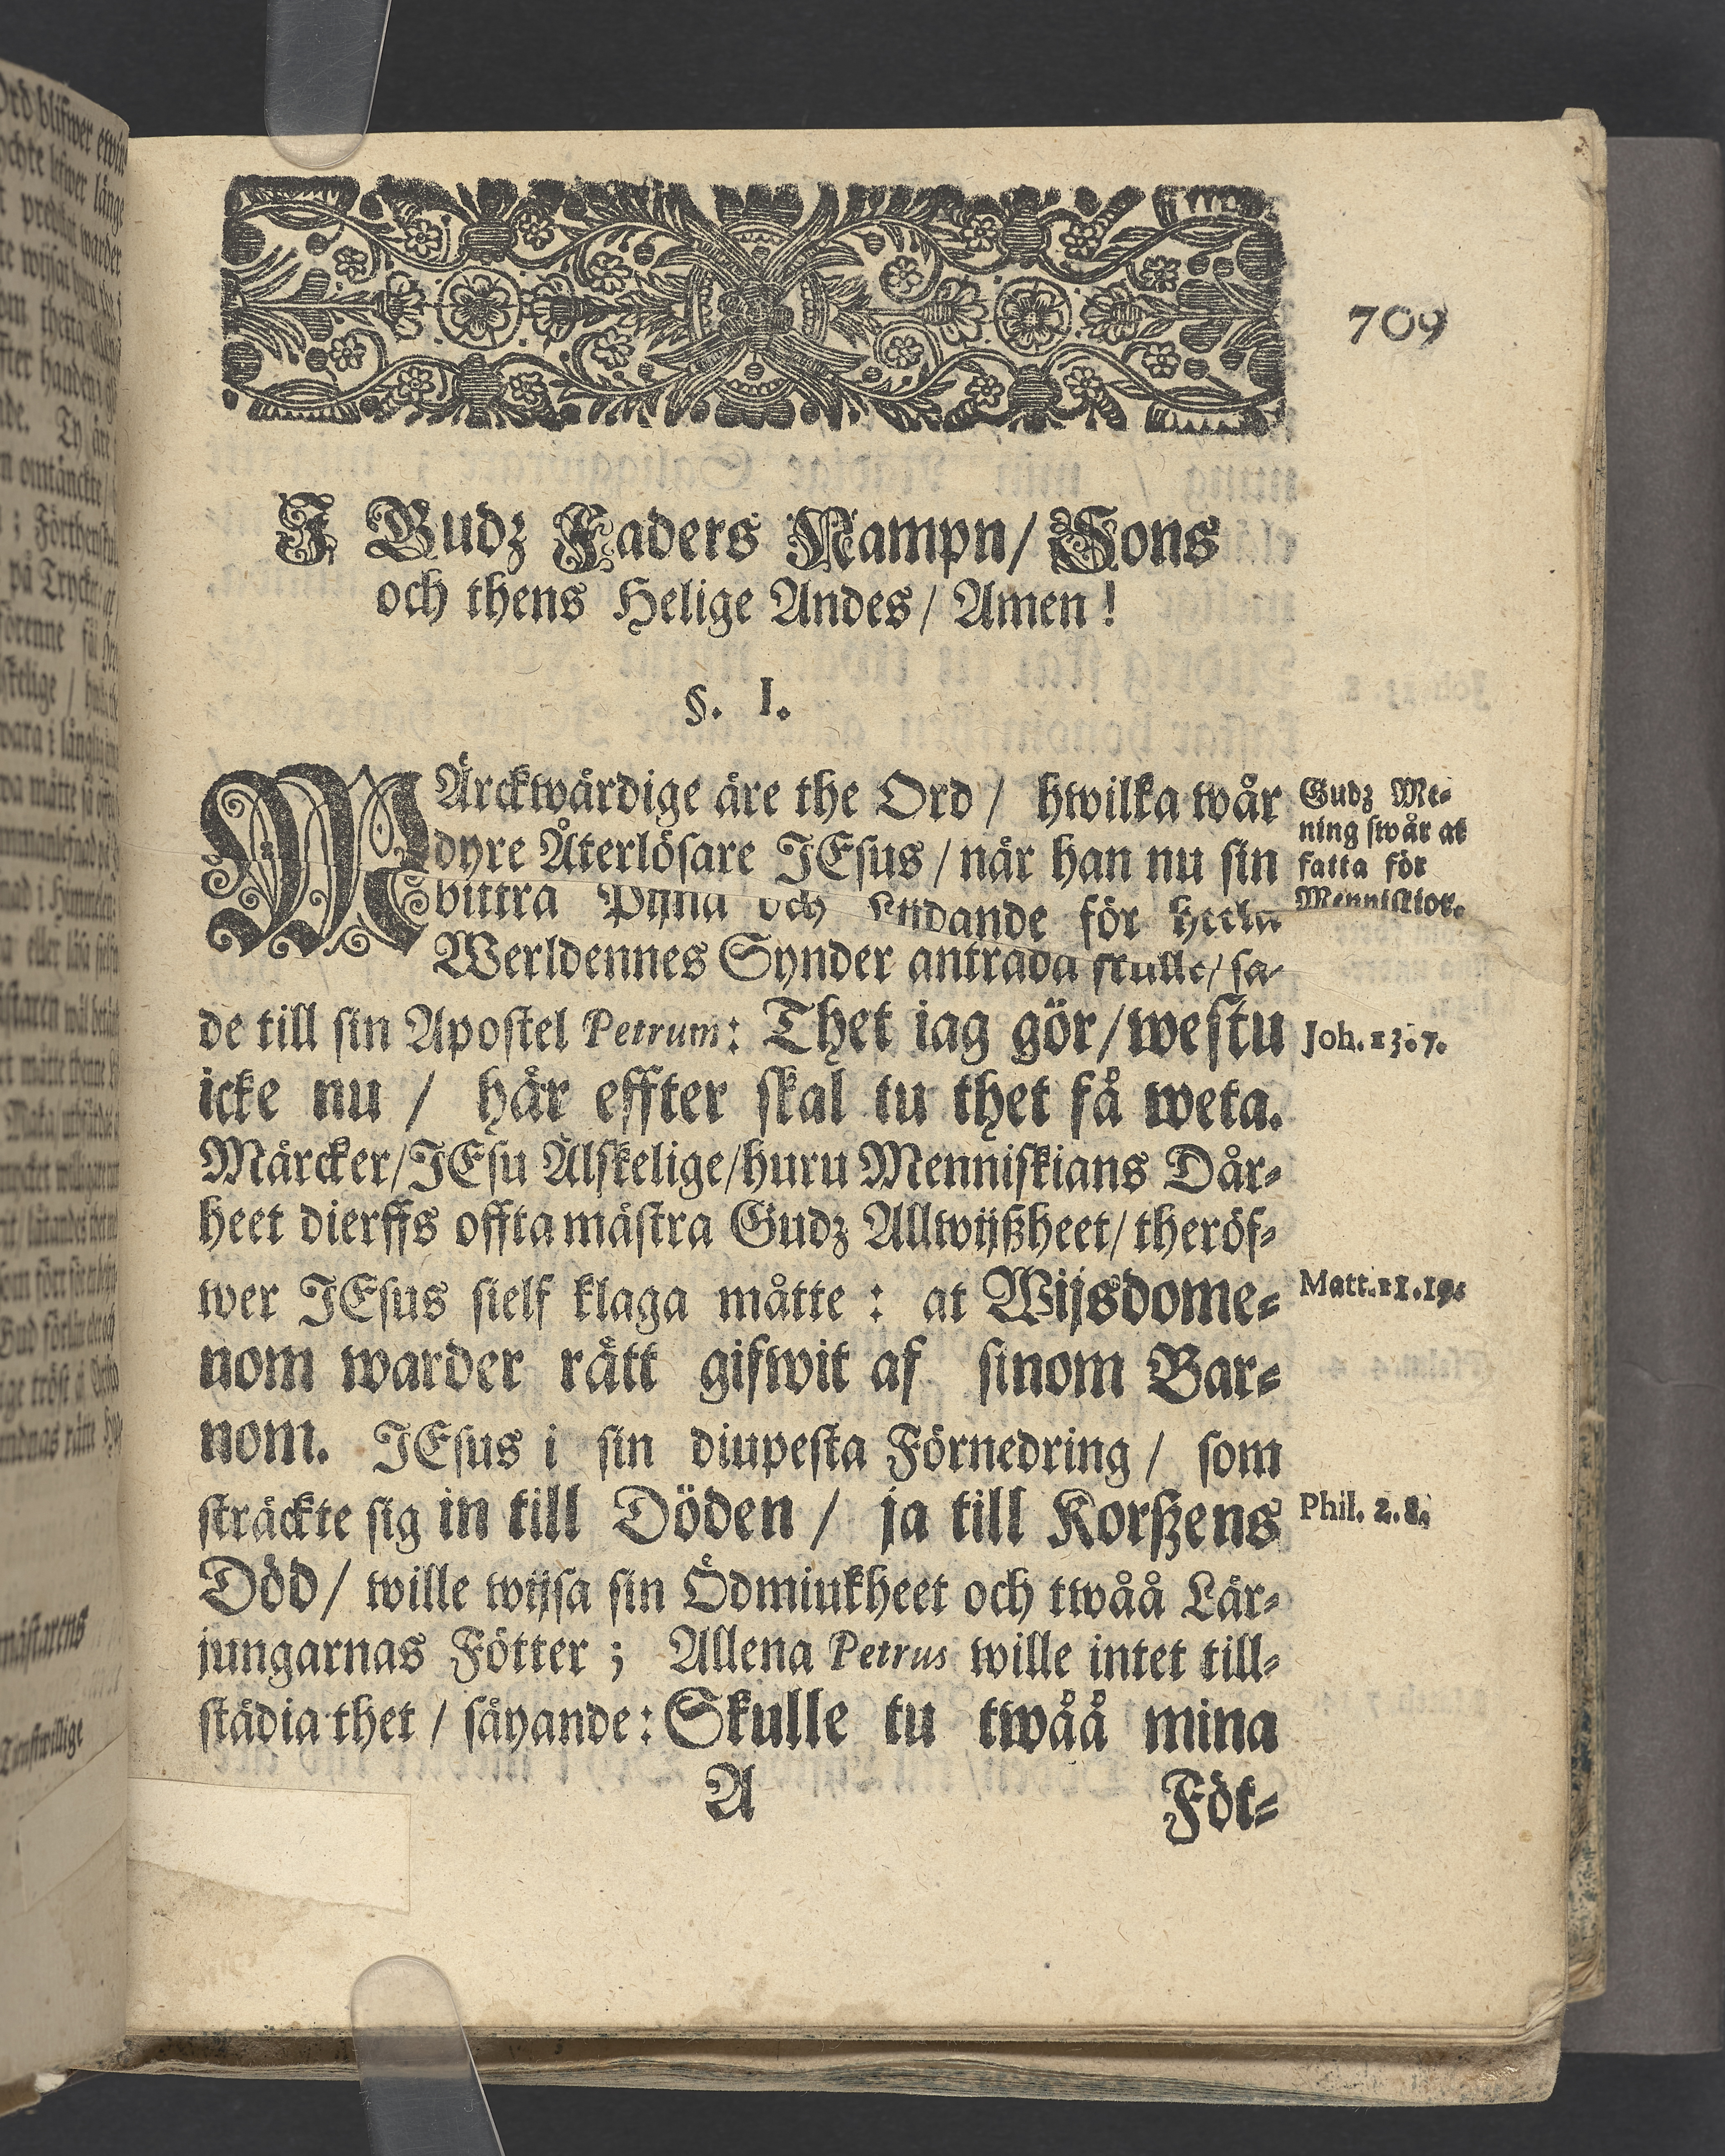 709
I Gudz Faders Nampn/ Sons
och thens Helige Andes/ Amen!
§. I.
MÄrckwärdige äre the Ord/ hwilka wår
dyre Återlösare JEsus/ när han nu sin
bittra Pijna och Lijdande för heela
Werldennes Synder anträda skulle/ sa-
de till sin Apostel Petrum: Thet iag gör/westu
icke nu/ här effter skal tu thet få weta.
Märcker/JEsu Älskelige/huru Menniskians Dår-
heet dierffs offta mästra Gudz Allwijßheet/ theröf-
wer JEsus sielf klaga måtte: at Wijsdome-
nom warder rätt gifwit af sinom Bar-
nom. JEsus i sin diupesta Förnedring/ som
sträckte sig in till Döden/ ja till Korßens
Död/ wille wijsa sin Ödmiukheet och twåå Lär-
jungarnas Fötter; Allena Petrus wille intet till-
städia thet/ säyande: Skulle tu twåå mina
A
Föt-
Gudz Me-
ning swår at
fatta för
Menniskior.
Joh. 13. 7.
Matt. 11. 19.
Phil. 2. 8.